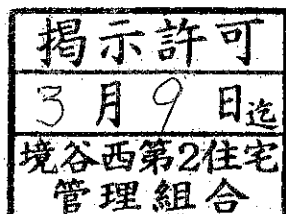 掲示許可
3月9日迄
境谷西第2住宅
管理組合